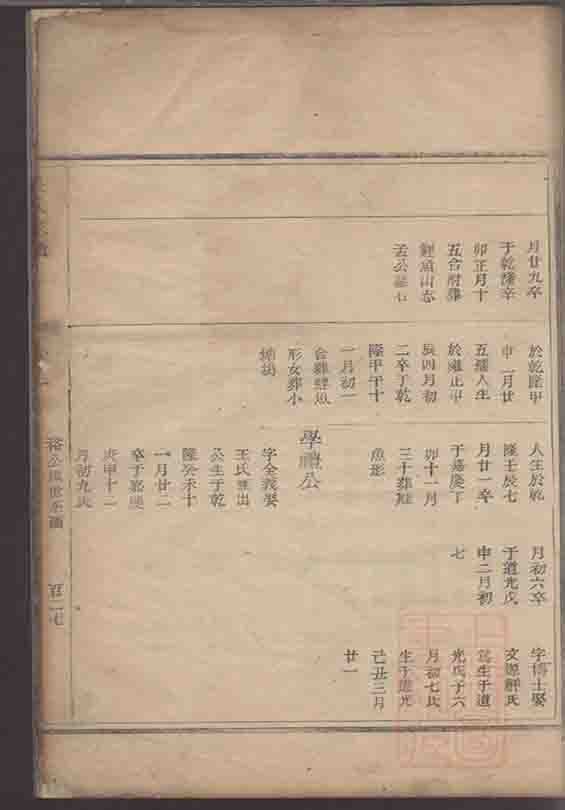 月廿九卒
于乾隆辛
卯正月十
五合附葬
鯉魚山志
孟公墓右
於乾隆甲
申一月廿
五孺人生
於雍正甲
辰四月初
二卒于乾
隆甲午十
一月初一
合葬鯉魚
形女葬小
人生於乾
隆壬辰七
月廿一卒
于嘉慶丁
卯十一月
三十葬鯉
魚形
學禮公
字全義娶
王氏無出
公生于乾
隆癸未十
一月廿二
卒于嘉慶
庚申十二
月初九氏
月初六卒
于道光戊
申二月初
七
字博士娶
文源解氏
公生于道
光戊子六
月初七氏
生于道光
己丑三月
廿一
裕公風世系圖